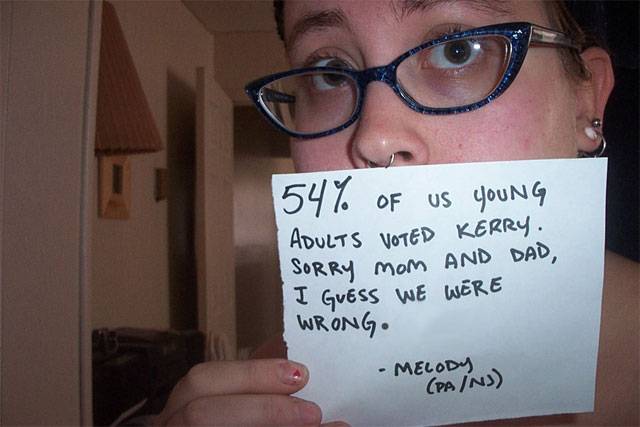 54% OF US YOUNG
ADULTS VOTED KERRY.
SORRY MOM AND DAD,
I GUESS WE WERE
WRONG.
- MELODY
(PA/NJ)